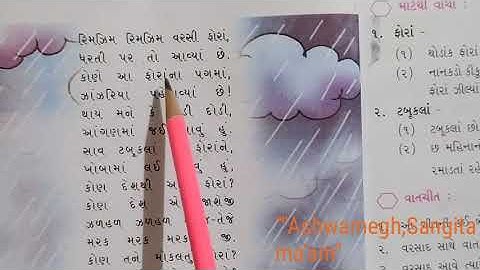 રિમઝિમ રિમઝિમ વરસી ફોરાં,
ધરતી પર તો આવ્યાં છે.
કોણે આ ફોરાંના પગમાં,
ઝાંઝરિયા છે!
થાય મને કે દોડી,
આંગણમાં જઈ હું,
સાવ ટબૂકલાં ફોરાંને,
ખોબામાં લઈ હું.
કોણ દેશથી ફોરાં?
કોણ દેશ એ જાશેજી
ઝળહળ ઝળહળ
મરક મરક મરક જી.
કોણ તને મોકલતું
માટેથી વાંચો :
૧. ફોરાં
(૧) થોડાંક ફોરાં
(૨) નાનકડો કીકુ
ફોરાં ઝીલ્યાં
૨. ટબૂકલાં
(૧) ટબૂકલાં છો
(૨) છ મહિનાન
રમાડતાં રહે
વાતચીત :
૨. વરસાદ સાથે વાત
૩. વરસાદ આવે ત્યારે
"Ashwamegh,Sangita
ma'am"